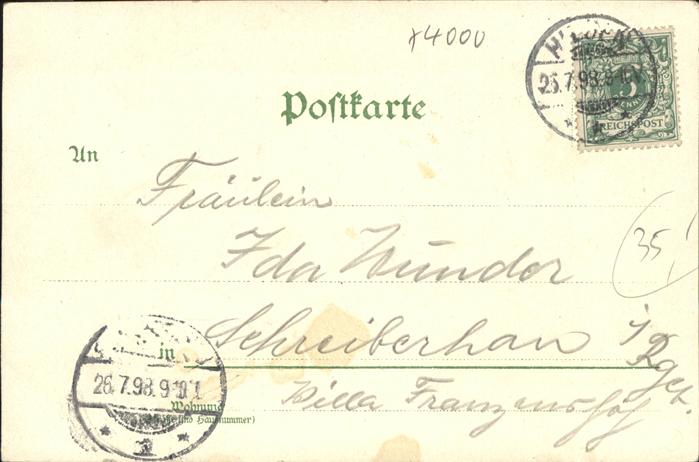 x4000
25.7.98.9-10V.
5
REICHSPOST
Postkarte
An
Fräulein
Ida Wunder
35,
in Schreiberhau i/
Rgeb.
26.7.98.9
Wohnung
(Straße und Hausnummer)
Villa Franzenshöh